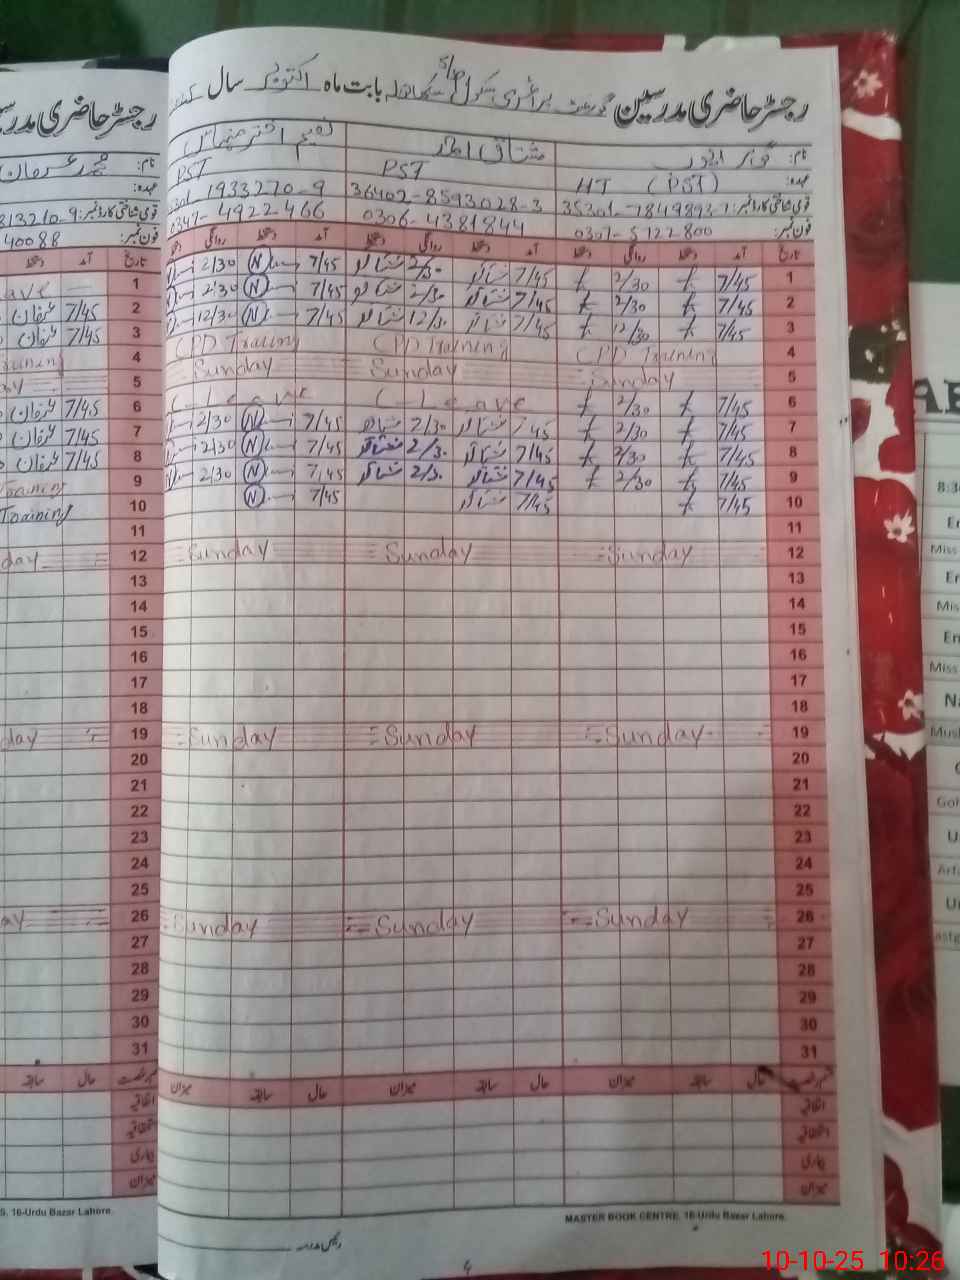 رجسٹر حاضری مدرسین گورنمنٹ پرائمری سکول بابت ماہ اکتوبر سال
نام: مشتاق احمد
عہدہ: HT (PST) PST PST
قومی شناختی کارڈ نمبر: 36402-8593028-3 1933210-9
فون نمبر: 0307-5122800 0306-4381844 0347-4922466
تاریخ آمد دستخط روانگی دستخط آمد دستخط روانگی دستخط آمد دستخط روانگی
1 7/45 2/30 7/45 مشتاق 2/30 مشتاق 7/45 N 2/30
2 7/45 2/30 7/45 مشتاق 2/30 مشتاق 7/45 N 2/30
3 7/45 12/30 7/45 مشتاق 12/30 مشتاق 7/45 N 12/30
4 CPD Training CPD Training CPD Training
5 Sunday Sunday Sunday
6 7/45 2/30 C Leave C Leave
7 7/45 2/30 7/45 مشتاق 2/30 مشتاق 7/45 N 2/30
8 7/45 2/30 7/45 مشتاق 2/30 مشتاق 7/45 N 2/30
9 7/45 2/30 7/45 مشتاق 2/30 مشتاق 7/45 N 2/30
10 7/45 7/45 مشتاق 7/45 N
11
12 Sunday Sunday Sunday
13
14
15
16
17
18
19 Sunday Sunday Sunday
20
21
22
23
24
25
26 Sunday Sunday Sunday
27
28
29
30
31
حال سابقہ میزان حال سابقہ میزان حال سابقہ میزان
اتفاقیہ
استحقاقیہ
بیماری
میزان
MASTER BOOK CENTRE, 16-Urdu Bazar Lahore.
رئیس مدرسہ
4
رجسٹر حاضری
نام: محمد عرفان
عہدہ:
قومی شناختی کارڈ نمبر: 313210-9
فون نمبر: 40088
تاریخ آمد دستخط
1 eave
2 7/45 عرفان
3 7/45 عرفان
4 raining
5 ay
6 7/45 عرفان
7 7/45 عرفان
8 7/45 عرفان
9 raining
10 Training
11
12 day
13
14
15
16
17
18
19 day
20
21
22
23
24
25
26 ay
27
28
29
30
31
حال سابقہ
اتفاقیہ
استحقاقیہ
بیماری
میزان
S, 16-Urdu Bazar Lahore.
8:3
En
Miss
En
Mis
En
Miss
Na
Mush
Goh
Arfa
10-10-25 10:26